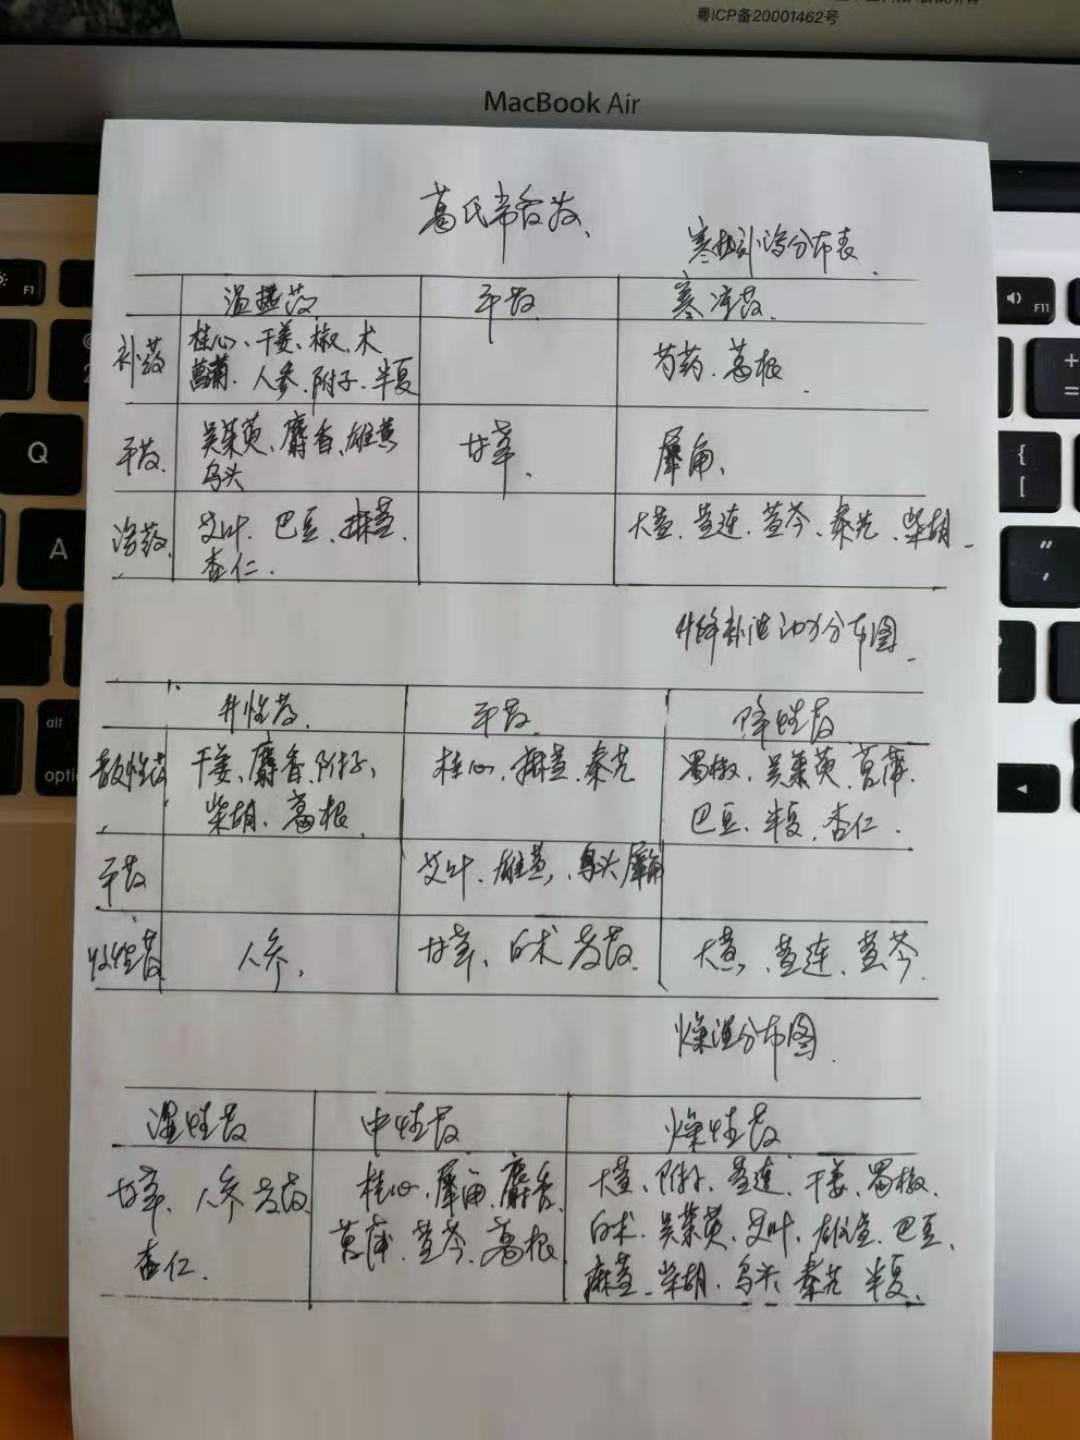 粤ICP备20001462号
MacBook Air
葛氏常备药、
寒热补泻分布表
温热药 平药 寒凉药
补药 桂心、干姜、椒、术 芍药、葛根
菖蒲、人参、附子、半夏
平药 吴茱萸、麝香、雄黄 甘草、 犀角、
乌头
泻药 艾叶、巴豆、麻黄、 大黄、黄连、黄芩、秦艽、柴胡
杏仁.
升降补泄 分布图
升性药、 平药、 降性药
散性药 干姜、麝香、附子、 桂心、麻黄、秦艽 蜀椒、吴茱萸、菖蒲、
柴胡、葛根、 巴豆、半夏、杏仁.
平药 艾叶、雄黄、乌头 犀角
收性药 人参, 甘草、白术 芍药 大黄、黄连、黄芩
燥湿分布图
湿性药 中性药 燥性药
甘草、人参 芍药 桂心、犀角、麝香 大黄、附子、黄连、干姜、蜀椒、
杏仁. 菖蒲、黄芩、葛根 白术、吴茱萸、艾叶、雄黄、巴豆、
麻黄、柴胡、乌头 秦艽 半夏、
F1
F11
Q
A
alt
option
+
=
{
[
"
'